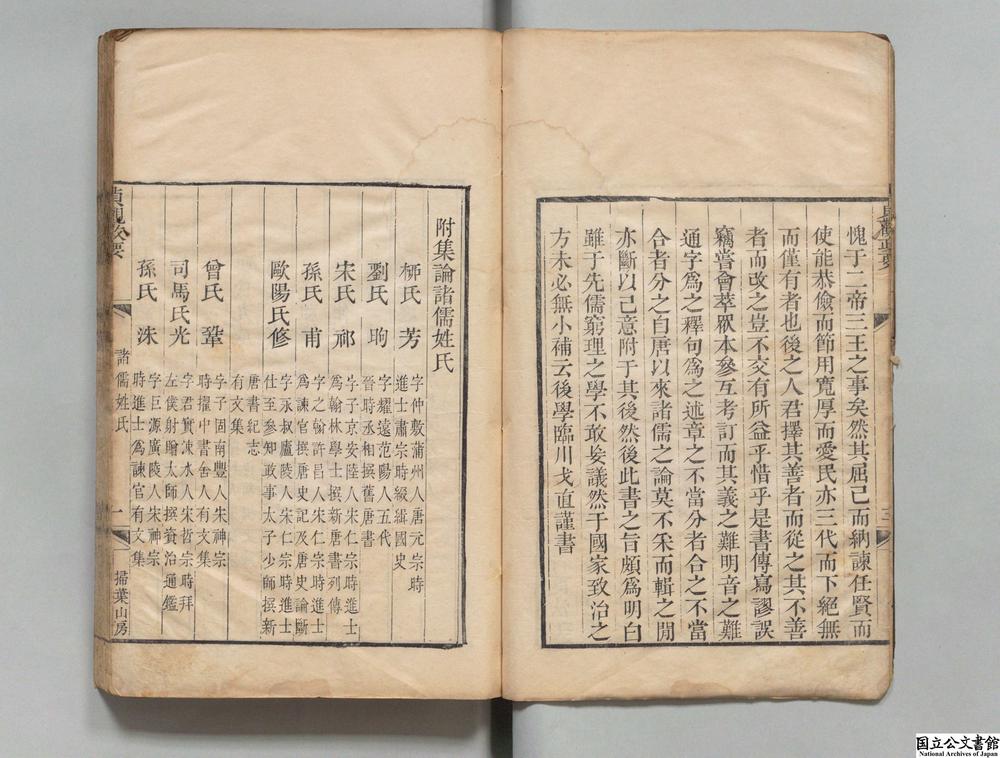 愧于二帝三王之事矣然其屈己而納諫任賢而
使能恭儉而節用寬厚而愛民亦三代而下絕無
而僅有者也後之人君擇其善者而從之其不善
者而改之豈不交有所益乎惜乎是書傳寫謬誤
竊嘗會萃眾本參互考訂而其義之難明音之難
通字爲之釋句爲之述章之不當分者合之不當
合者分之自唐以來諸儒之論莫不采而輯之閒
亦斷以己意附于其後然後此書之旨頗爲明白
雖于先儒窮理之學不敢妄議然于國家致治之
方未必無小補云後學臨川戈直謹書
附集論諸儒姓氏
柳氏 芳 字仲敷蒲州人唐元宗時
進士肅宗時綴緝國史
劉氏 昫 字耀遠范陽人五代
晉時丞相撰舊唐書
宋氏 祁 字子京安陸人宋仁宗時進士
爲翰林學士撰新唐書列傳
孫氏 甫 字之翰許昌人宋仁宗時進士
爲諫官撰唐史記及唐史論斷
歐陽氏修 字永叔廬陵人宋仁宗時進士
仕至參知政事太子少師撰新
唐書紀志
有文集
曾氏 鞏 字子固南豐人宋神宗
時擢中書舍人有文集
司馬氏光 字君實涑水人宋哲宗時拜
左僕射贈太師撰資治通鑑
孫氏 洙 字巨源廣陵人宋神宗
時進士爲諫官有文集
貞觀政要
諸儒姓氏
一
掃葉山房
国立公文書館
National Archives of Japan